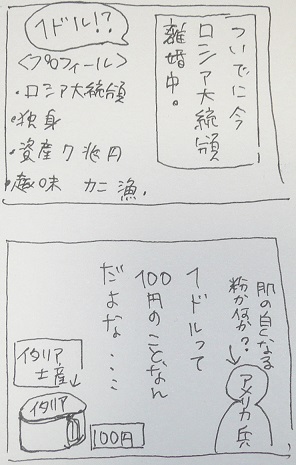 ついでに今
ロシア大統領
離婚中。
1ドル!?
<プロフィール>
・ロシア大統領
・独身
・資産7兆円
・趣味 カニ漁.
肌の白くなる
粉か何か?
アメリカ兵
1ドルって
100円のことなん
だよな…
イタリア
土産
イタリア
100円